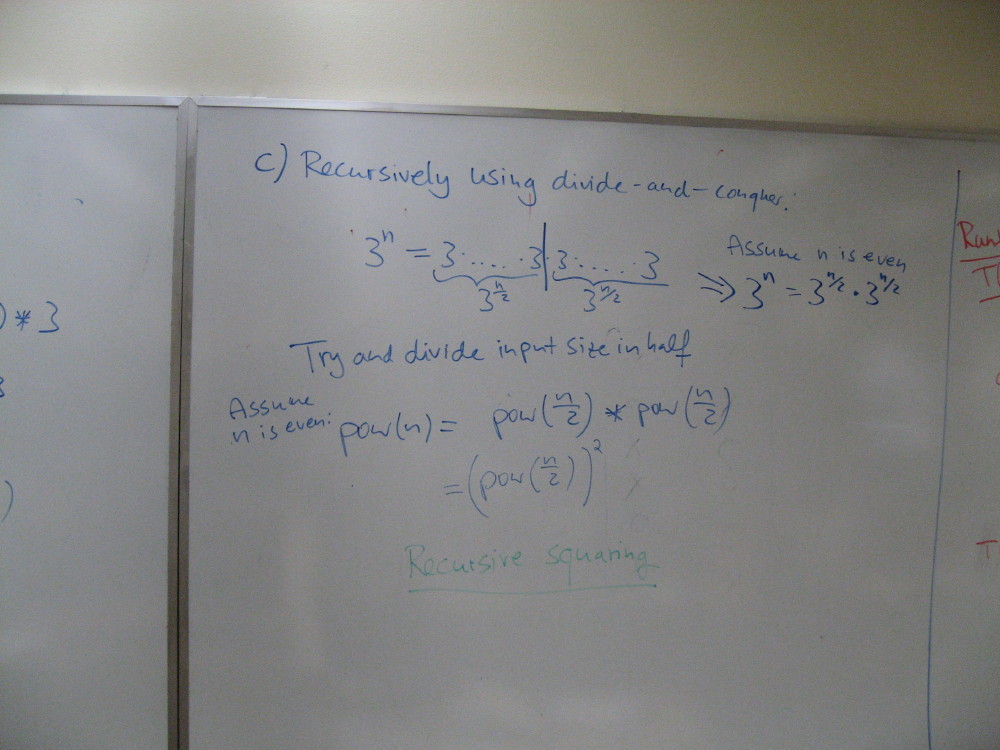 c) Recursively using divide-and-conquer:
3^n = 3·....·3|·3·....·3
3^n/2 3^n/2
Assume n is even
⇒ 3^n = 3^n/2 · 3^n/2
Try and divide input size in half
Assume
n is even:
pow(n) = pow(n/2) * pow(n/2)
= (pow(n/2))^2
Recursive squaring
) * 3
3
)
Run
T
T